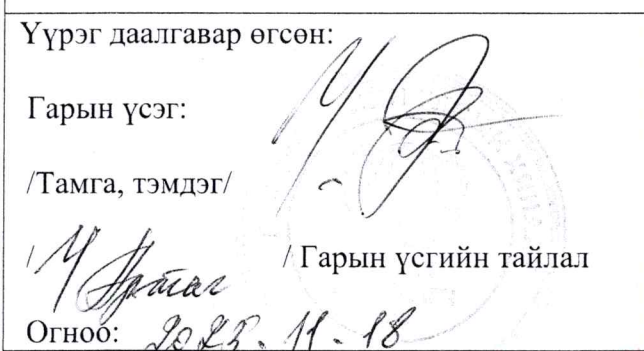 Үүрэг даалгавар өгсөн:
Гарын үсэг:
/Тамга, тэмдэг/
/ / Гарын үсгийн тайлал
Огноо: 2025.11.18